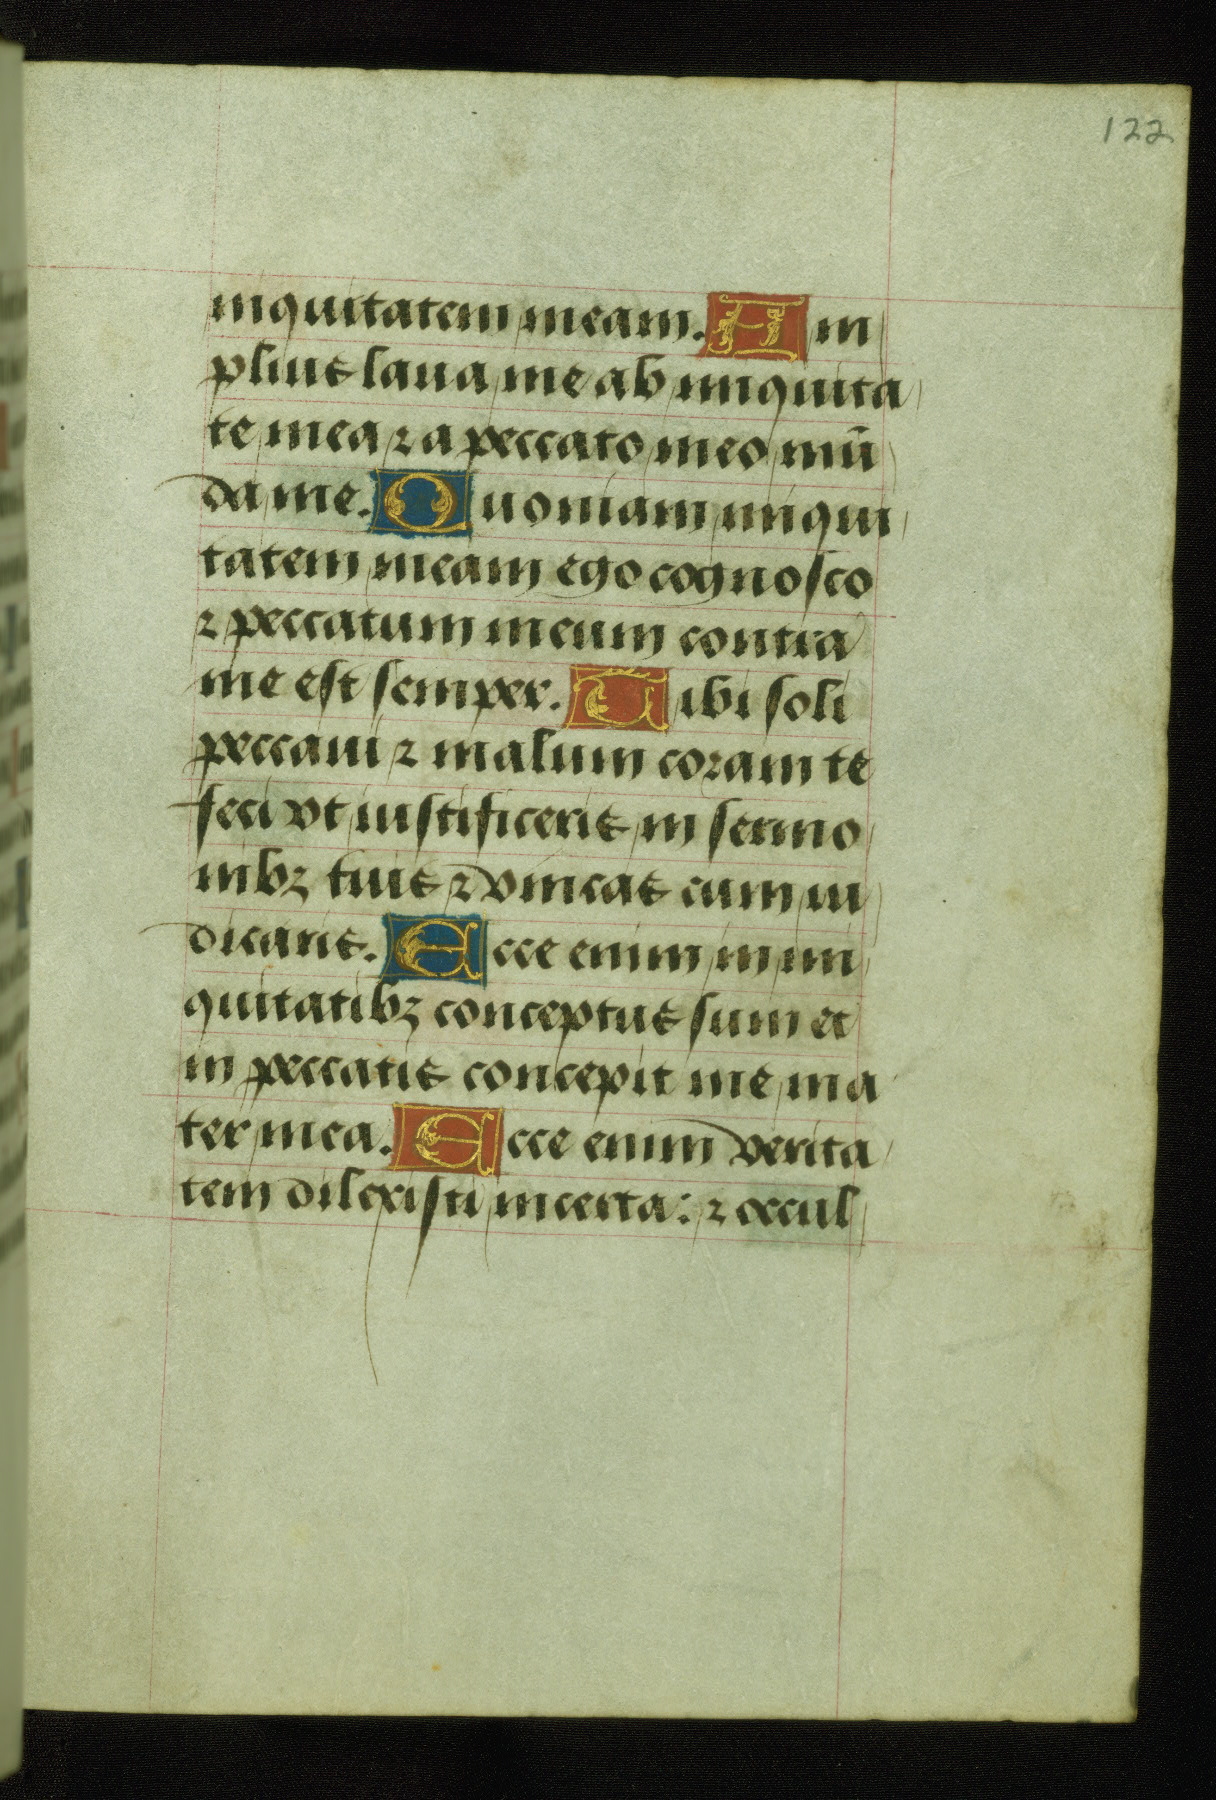 122
iniquitatem meam. Am
plius laua me ab iniquita
te mea ⁊ a peccato meo mū
da me. Quoniam iniqui
tatem meam ego cognosco
⁊ peccatum meum contra
me est semper. Tibi soli
peccaui ⁊ malum coram te
feci vt iustificeris in sermo
nibꝫ tuis ⁊ vincas cum iu
dicaris. Ecce enim in ini
quitatibꝫ conceptus sum et
in peccatis concepit me ma
ter mea. Ecce enim verita
tem dilexisti incerta: ⁊ occul